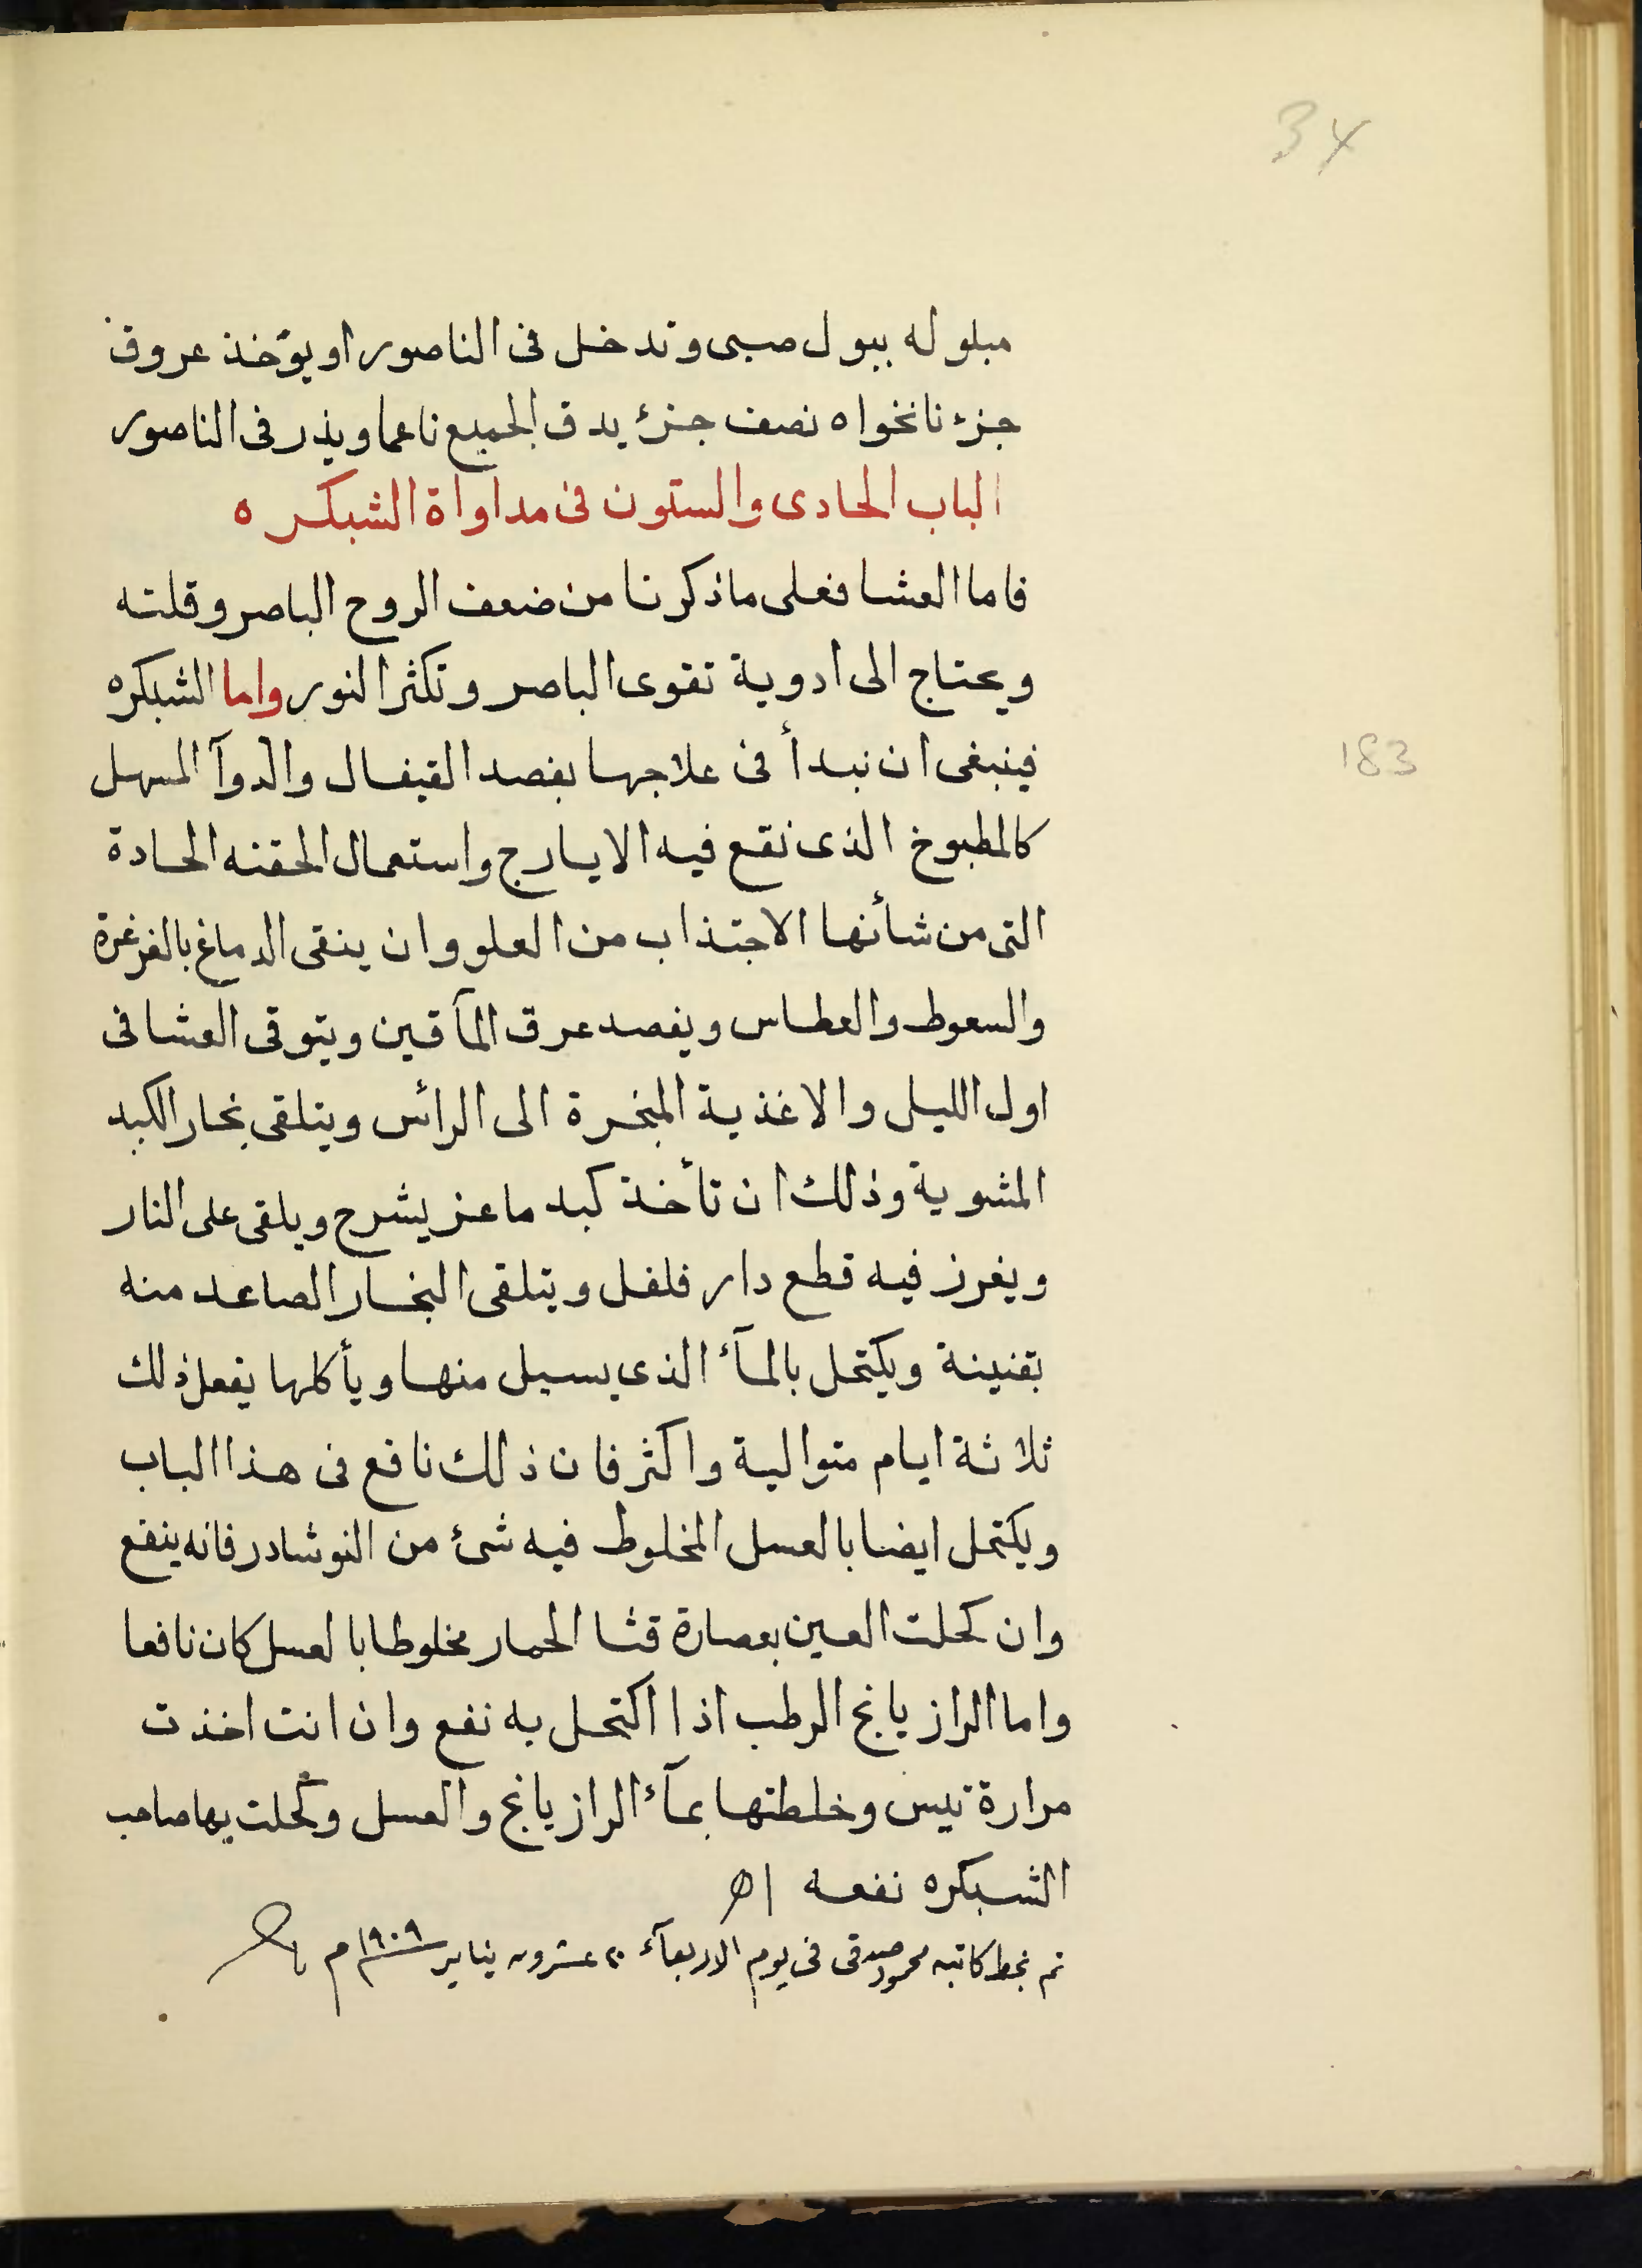 34
مبلوله ببول صبى وتدخل فى الناصور او يؤخذ عروق
جزء نانخواه نصف جزء يدق الجميع ناعما ويذر فى الناصور
الباب الحادى والستون فى مداواة الشبكره
فاما العشا فعلى ما ذكرنا من ضعف الروح الباصر وقلته
ويحتاج الى ادوية تقوى الباصر وتكثر النور واما الشبكره
فينبغى ان نبدأ فى علاجها بفصد القيفال والدوآ المسهل
183
كالمطبوخ الذى نقع فيه الايارج واستعمال الحقنه الحادة
التى من شأنها الاجتذاب من العلو وان ينقى الدماغ بالغرغرة
والسعوط والعطاس ويفصد عرق المآقين ويتوقى العشا فى
اول الليل والاغذية المبخرة الى الرائس ويتلقى بخار الكبد
المشوية وذلك ان تأخذ كبد ماعز يشرح ويلقى على النار
ويغرز فيه قطع دار فلفل ويتلقى البخار الصاعد منه
بقنينة ويكتحل بالمآء الذى يسيل منها ويأكلها يفعل ذلك
ثلاثة ايام متوالية واكثر فان ذلك نافع فى هذا الباب
ويكتحل ايضا بالعسل المخلوط فيه شئ من النوشادر فانه ينفع
وان كحلت العين بعصارة قثا الحمار مخلوطا بالعسل كان نافعا
واما الرازيانج الرطب اذا اكتحل به نفع وان انت اخذت
مرارة تيس وخلطتها بمآء الرازيانج والعسل وكحلت بها صاحب
الشبكره نفعه اھ
تم بخط كاتبه محمود صدقى فى يوم الاربعآء ٢٠ عشرون يناير ١٩٠٩ م